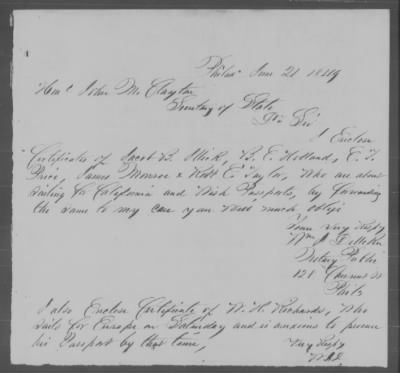 Philada June 21 1849
Honl John M. Clayton
Secretary of State
Dr Sir
I Enclose
Certificates of Jacob B. B. E. Holland, C. F.
Price, James Monroe & Robt E. Taylor, who are about
sailing for California and wish Passports, by forwarding
the same to my care you will much oblige
Yours Very Respy
Wm J.
Notary Public
128 Chesnut St
Phila
I also Enclose Certificate of W. H. Richards, who
sails for Europe on Saturday and is anxious to procure
his Passport by that time,
Very Respy